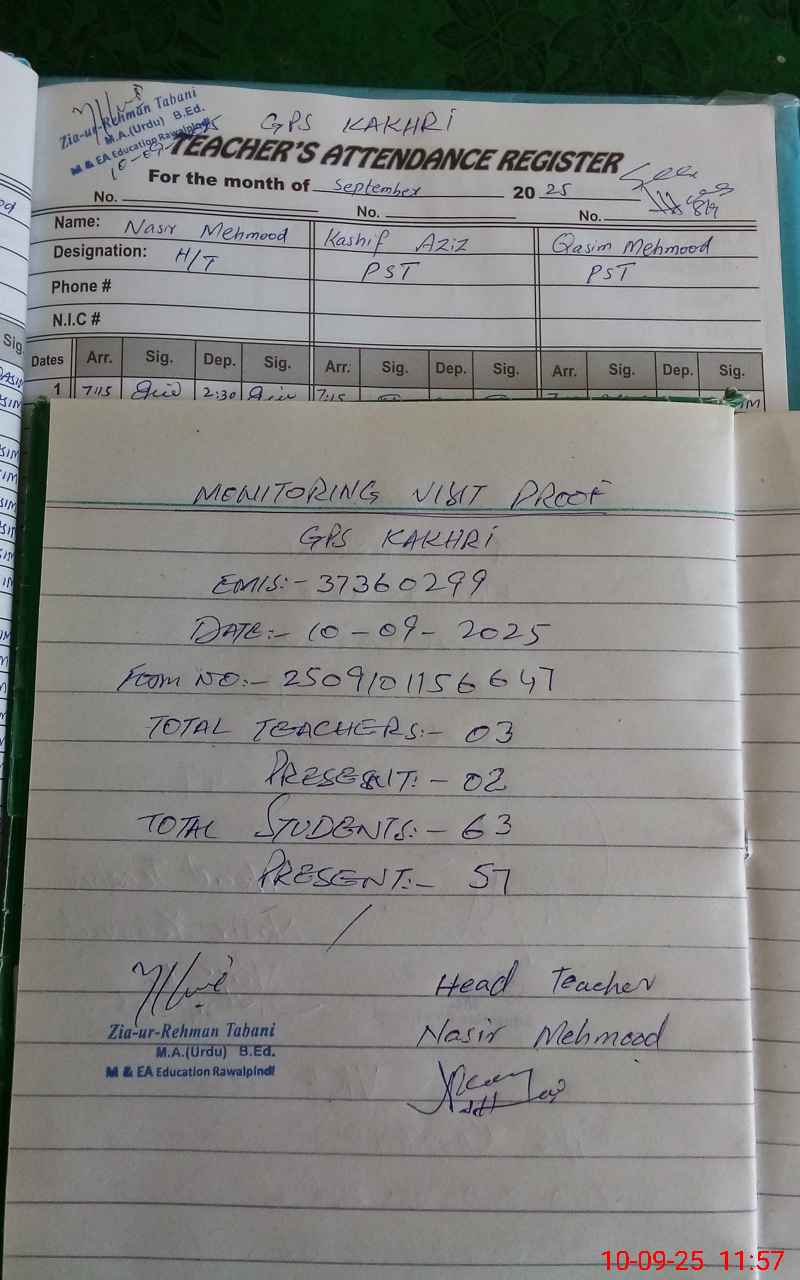 Zia-ur-Rehman Tabani
M.A.(Urdu) B.Ed.
M & EA Education Rawalpindi
GPS KAKHRI
TEACHER'S ATTENDANCE REGISTER
For the month of September 2025
No. No. No.
Name: Nasir Mehmood Kashif Aziz Qasim Mehmood
Designation: H/T PST PST
Phone #
N.I.C #
Dates Arr. Sig. Dep. Sig. Arr. Sig. Dep. Sig. Arr. Sig. Dep. Sig.
1 7:15 2:30 7:15
MONITORING VISIT PROOF
GPS KAKHRI
EMIS:- 37360299
DATE:- 10-09-2025
Form NO:- 2509101156647
TOTAL TEACHERS:- 03
PRESENT:- 02
TOTAL STUDENTS:- 63
PRESENT:- 57
Head Teacher
Nasir Mehmood
Zia-ur-Rehman Tabani
M.A.(Urdu) B.Ed.
M & EA Education Rawalpindi
10-09-25 11:57